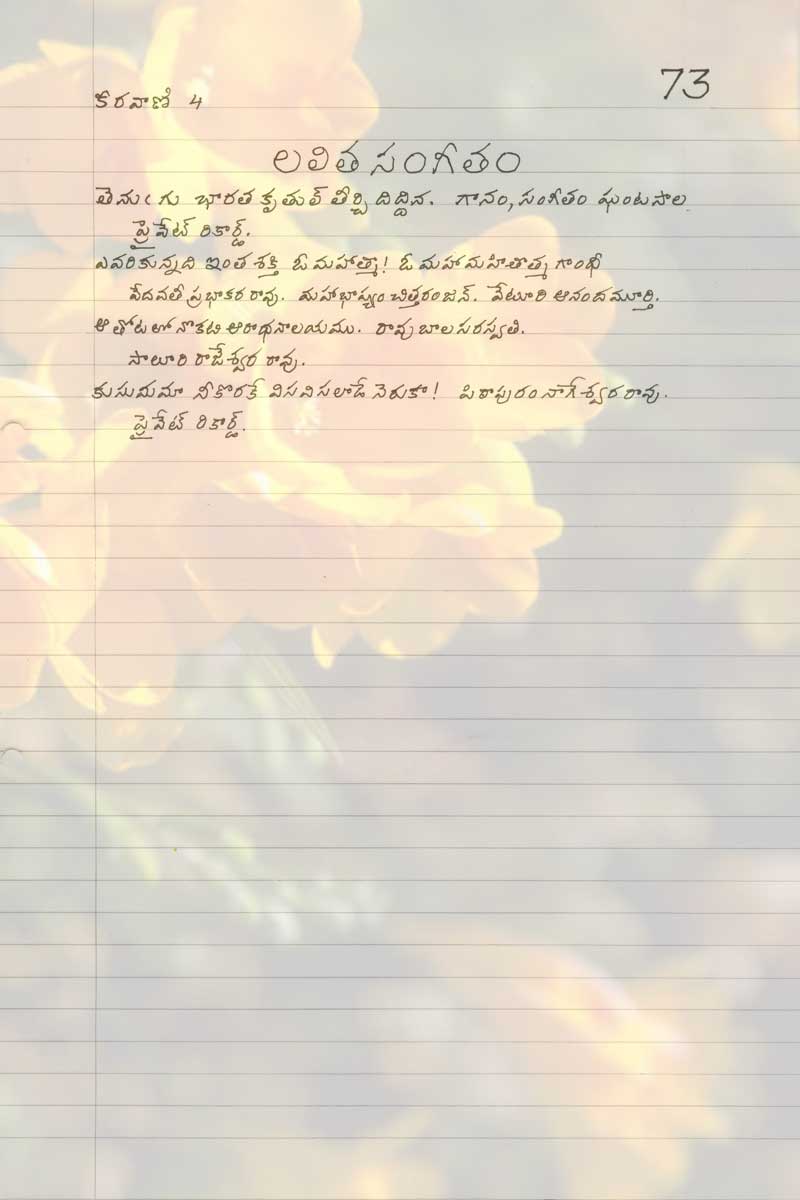 కీరవాణి 4
73
లలితసంగీతం
తెనుఁగు భారత కృతుల్ తీర్చి దిద్దిన. గానం, సంగీతం ఘంటసాల
ప్రైవేట్ రికార్డ్.
ఎవరికున్నది ఇంత శక్తి ఓ మహాత్మా! ఓ మహామహితాత్మ గాంధీ
వేదవతీ ప్రభాకర రావు. మహాభాష్యం చిత్తరంజన్. వేటూరి ఆనందమూర్తి.
ఆ తోటలో నొకటి ఆరాధనాలయము. రావు బాల సరస్వతి.
సాలూరి రాజేశ్వర రావు.
కుసుమమా నీకొరకే విసవిసలాడే నెరుకా! పిఠాపురం నాగేశ్వర రావు.
ప్రైవేట్ రికార్డ్.